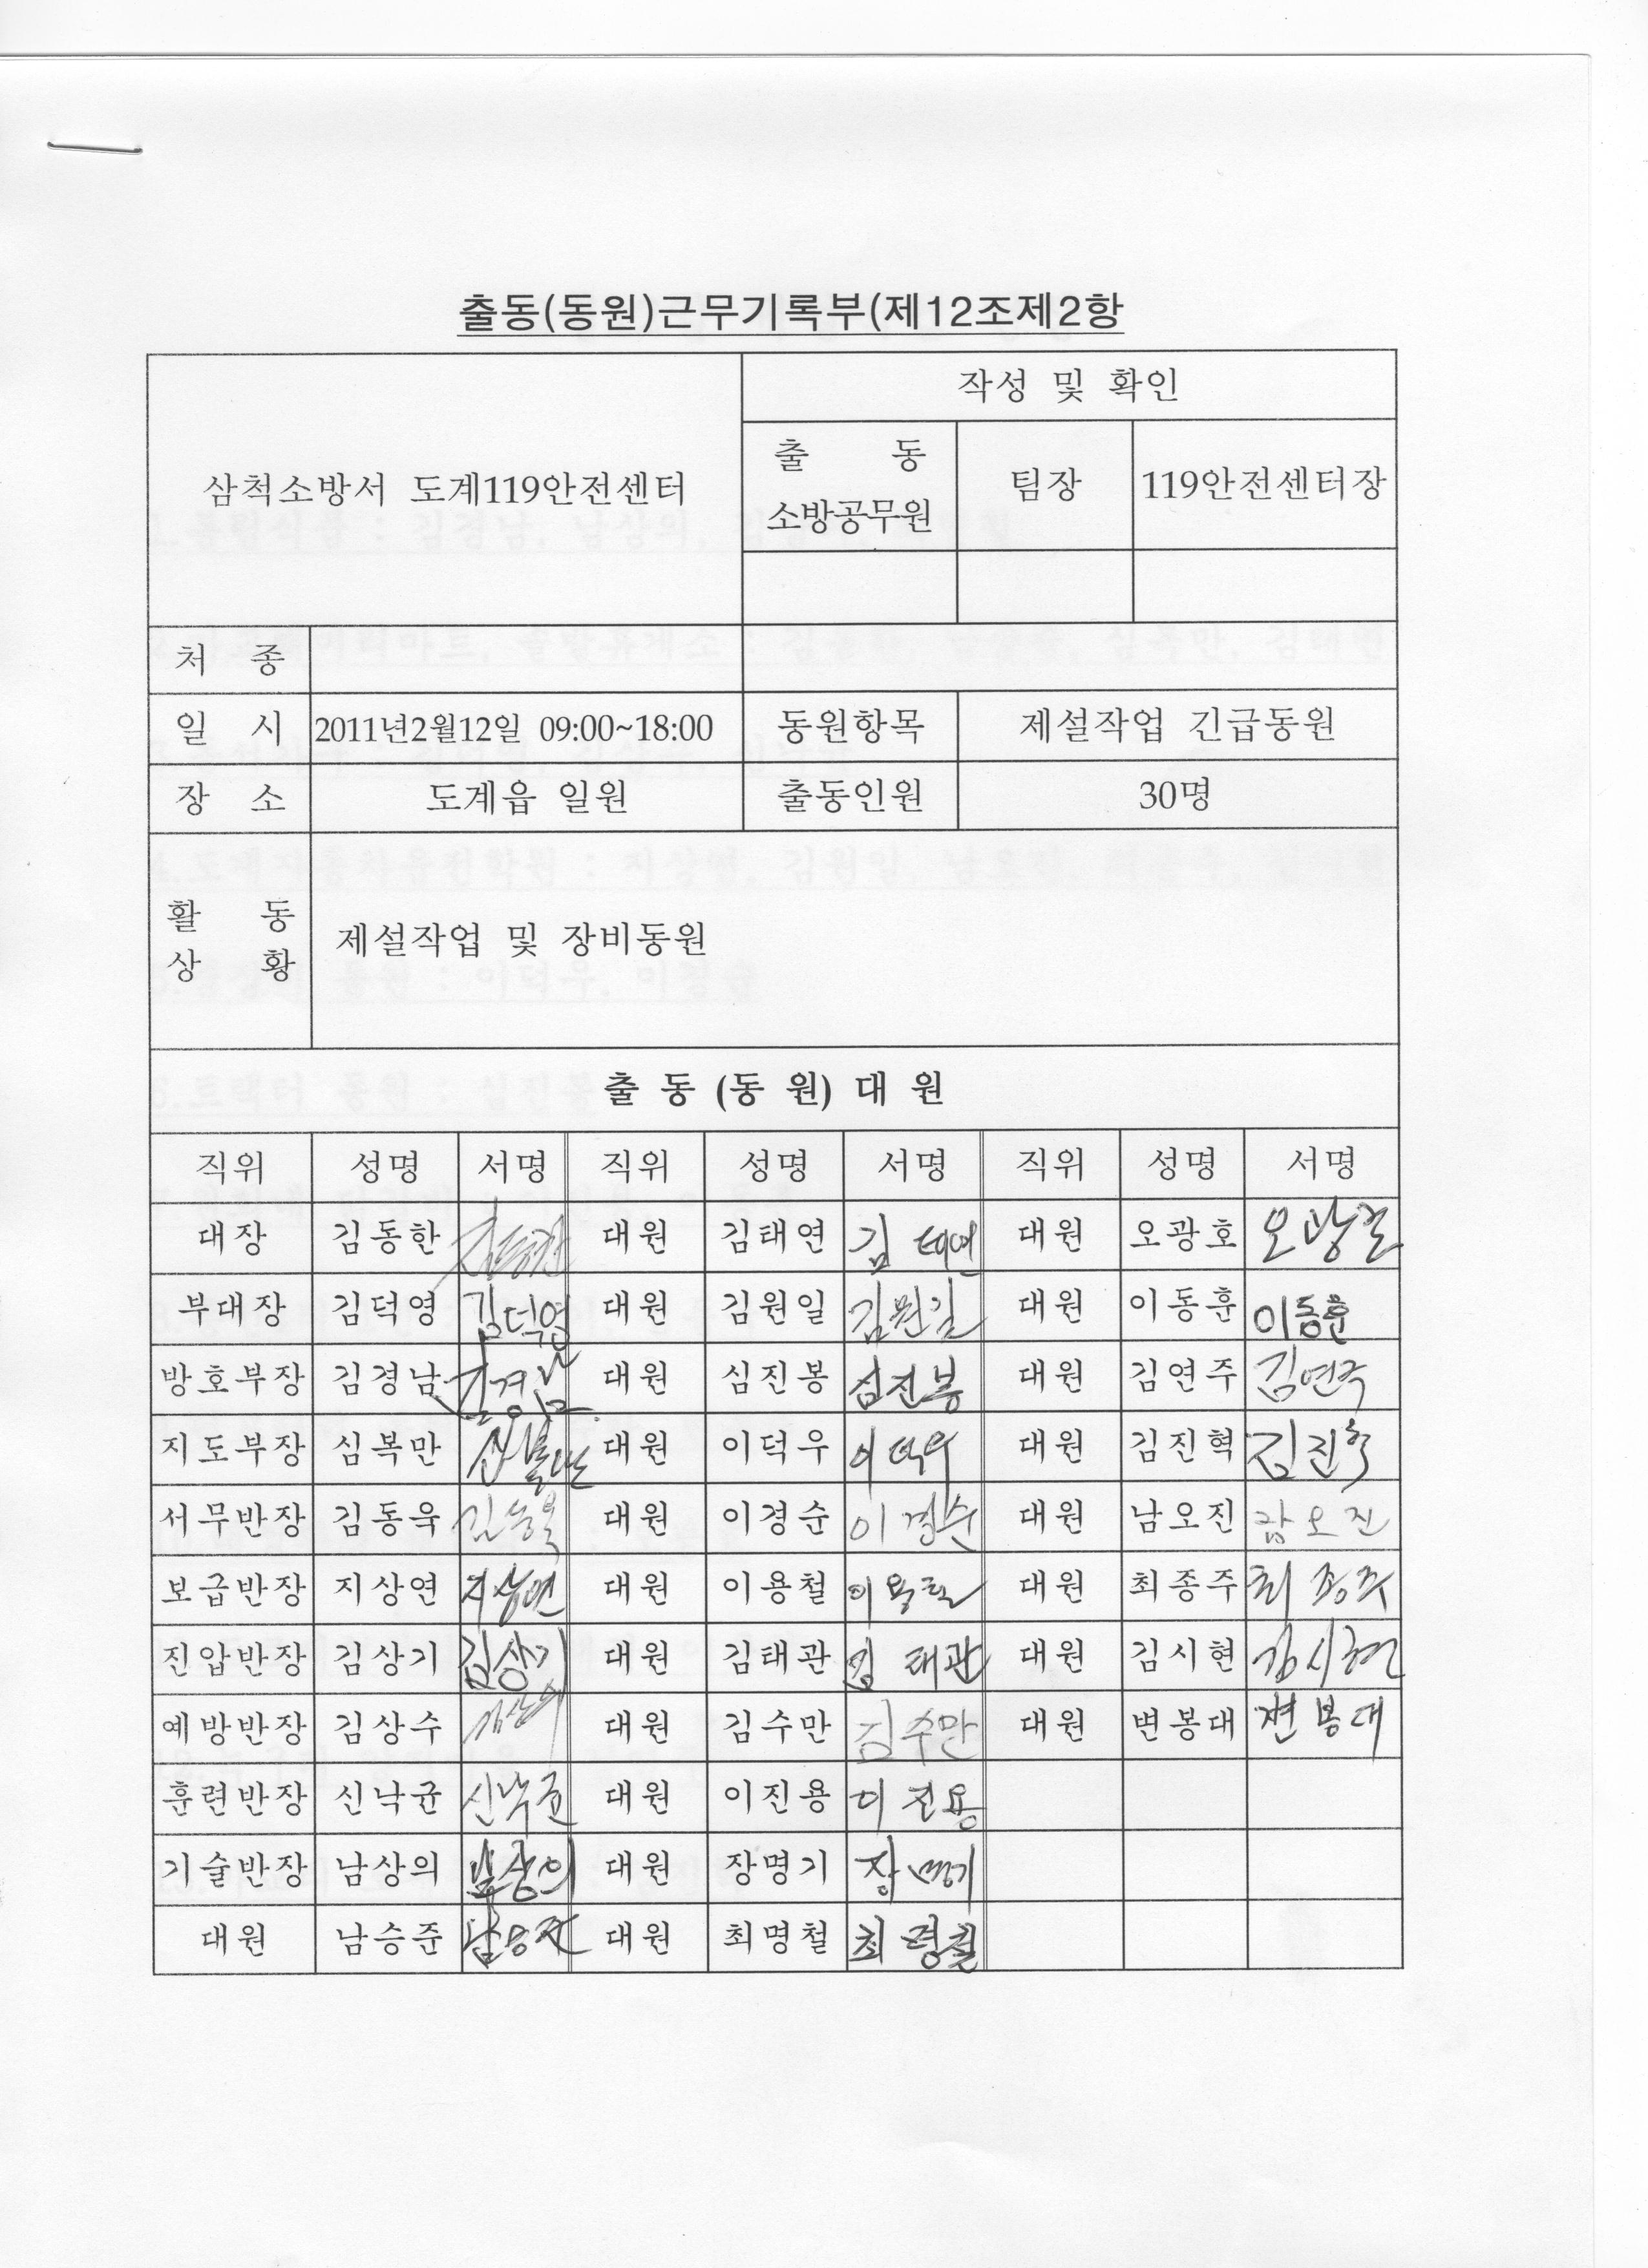 출동(동원)근무기록부(제12조제2항
삼척소방서 도계119안전센터
작성 및 확인
출 동
소방공무원
팀장
119안전센터장
처 종
일 시 2011년2월12일 09:00~18:00 동원항목 제설작업 긴급동원
장 소 도계읍 일원 출동인원 30명
활 동
상 황
제설작업 및 장비동원
출 동 (동 원) 대 원
직위 성명 서명 직위 성명 서명 직위 성명 서명
대장 김동한 김동한 대원 김태연 김태연 대원 오광호 오광호
부대장 김덕영 김덕영 대원 김원일 김원일 대원 이동훈 이동훈
방호부장 김경남 김경남 대원 심진봉 심진봉 대원 김연주 김연주
지도부장 심복만 심복만 대원 이덕우 이덕우 대원 김진혁 김진혁
서무반장 김동욱 김동욱 대원 이경순 이경순 대원 남오진 남오진
보급반장 지상연 지상연 대원 이용철 이용철 대원 최종주 최종주
진압반장 김상기 김상기 대원 김태관 김태관 대원 김시현 김시현
예방반장 김상수 대원 김수만 김수만 대원 변봉대 변봉대
훈련반장 신낙균 신낙균 대원 이진용 이진용
기술반장 남상의 남상의 대원 장명기 장명기
대원 남승준 남승준 대원 최명철 최명철